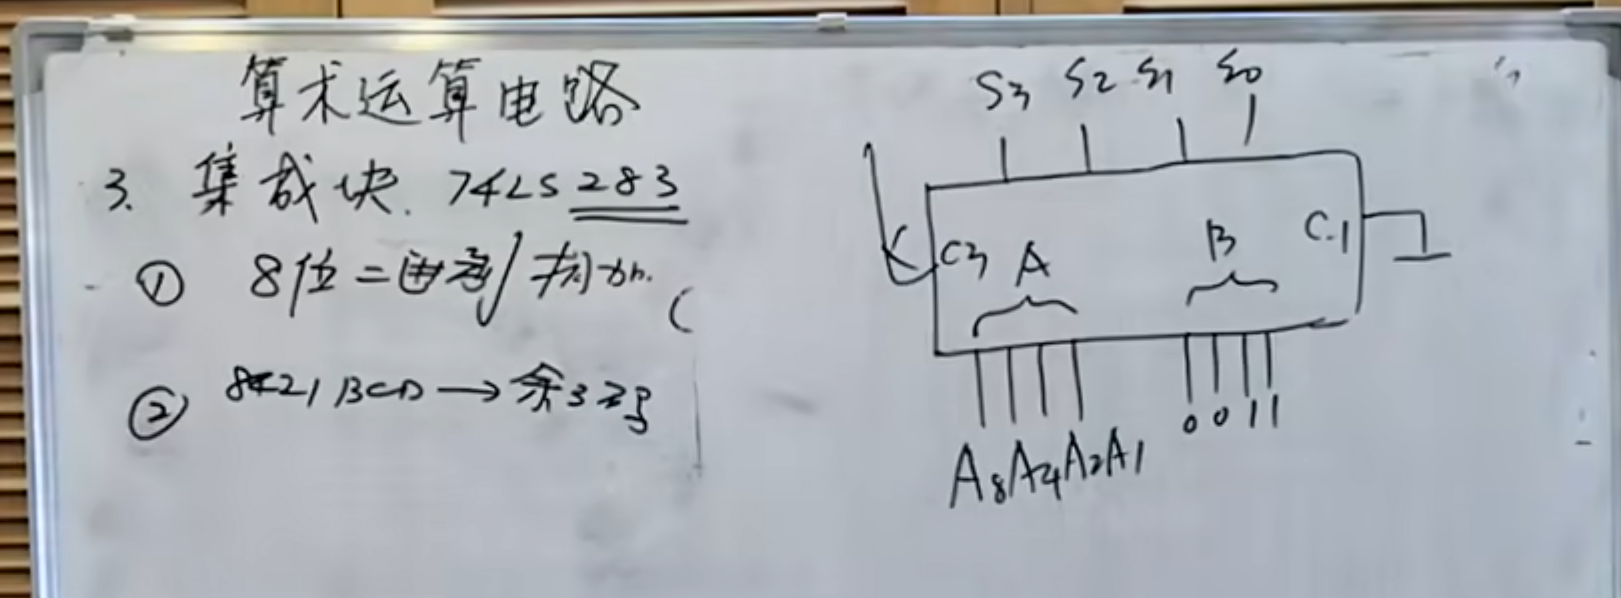 算术运算电路
3. 集成块. 74LS283
① 8位二进制
② 8421 BCD → 余3码
S3 S2 S1 S0
C3 A B C-1
0011
A8A4A2A1